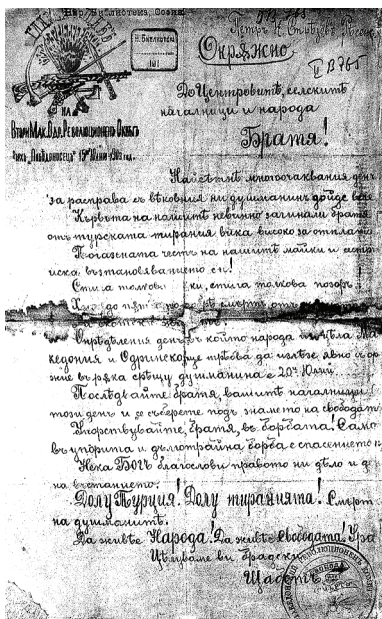 Нар. Библиотека, София
Н. Библиотека
II В 765
Окрѫжно
До Центровитѣ, селскитѣ
началници и народа
Братя!
НА
Втори Мак. Одр. Революционенъ Окрѫгъ
15й Юлий 1903 год.
Най сѣтнѣ многоочаквания день
за расправа съ вѣковния ни душманинъ дойде
Кръвьта на нашитѣ невинно загинали братя
отъ турската тирания вика високо за отплата
Погазената честь на нашитѣ майки и сестри
иска възстановяванието си!
Стига толкова ки, стига толкова позоръ!
смърть
Опрѣдѣления день въ който народа изъ цѣла Ма
кедония и Одринско ще трѣбва да излѣзе явно съ орѫ
жие въ рѫка срѣщу душманина е 20й Юлий.
Послѣдвайте братя, вашитѣ началници
този день и се съберете подъ знамето на свободата
Упорствувайте, братя, въ борбата! Само
въ упорита и дълготрайна борба е спасението
Нека БОГЪ благослови правото ни дѣло и д
на въстанието.
Долу Турция! Долу тиранията! Смърть
на душманитѣ.
Да живѣе Народа! Да живѣе Свободата! Ура
Цѣлуваме ви братски
Щабътъ